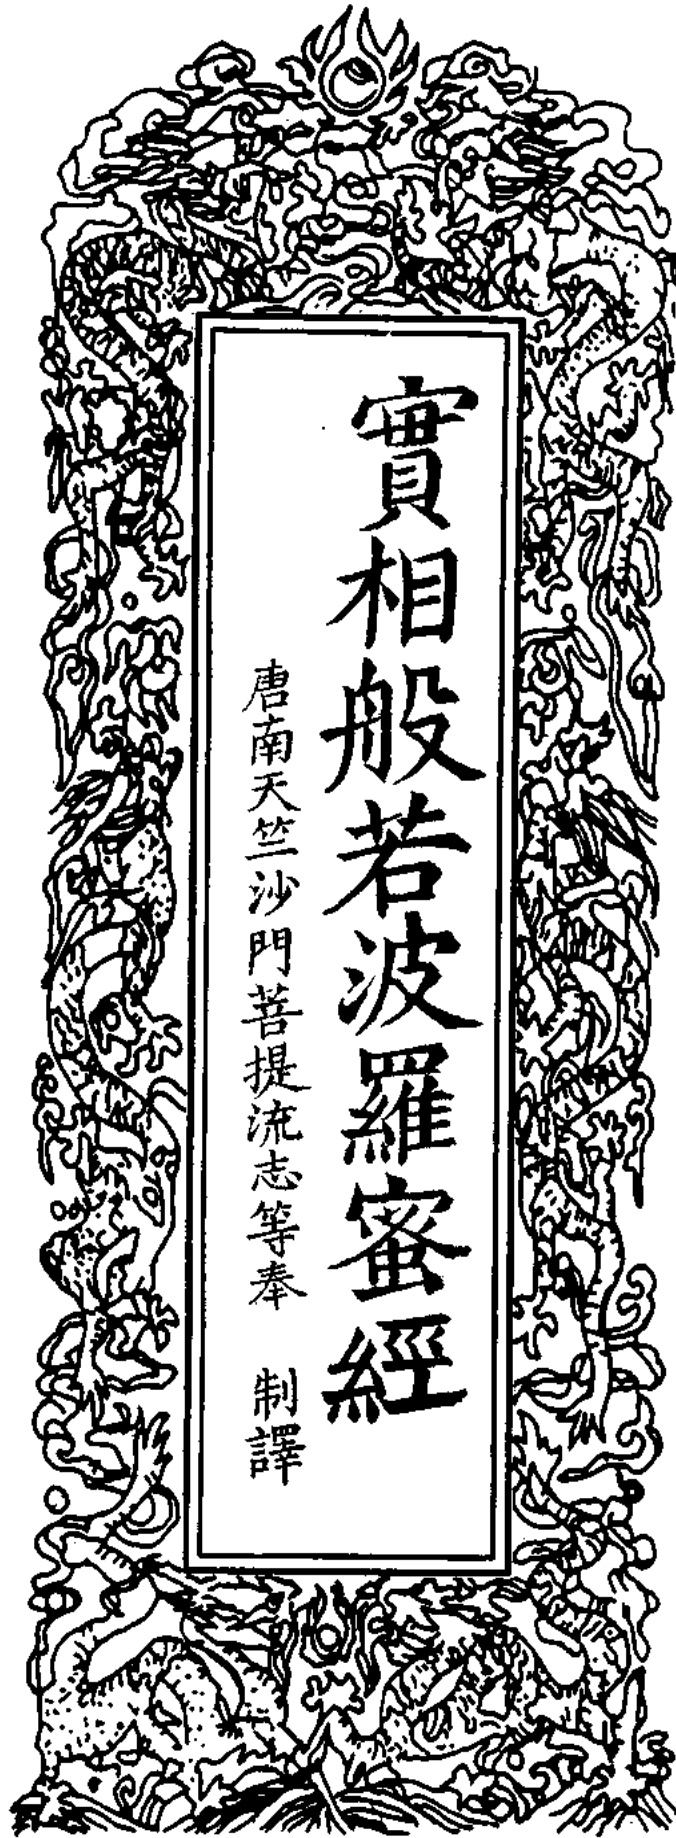 實相般若波羅蜜經
唐南天竺沙門菩提流志等奉 制譯